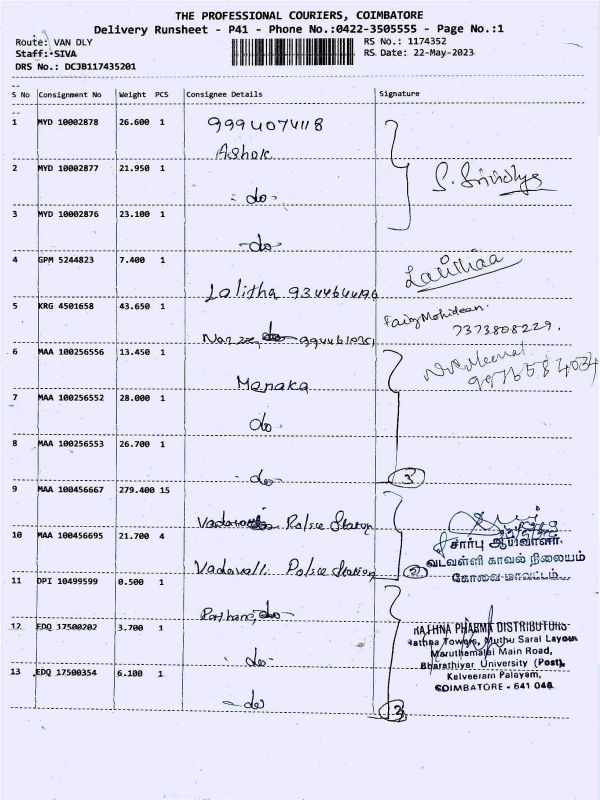 THE PROFESSIONAL COURIERS, COIMBATORE
Delivery Runsheet - P41 - Phone No.:0422-3505555 - Page No.:1
Route: VAN DLY
RS No.: 1174352
Staff: SIVA
RS Date: 22-May-2023
DRS No.: DCJB117435201
S No Consignment No Weight PCS Consignee Details Signature
1 MYD 10002878 26.600 1
9994074118
Ashok
2 MYD 10002877 21.950 1
- do -
S. Srividhya
3 MYD 10002876 23.100 1
- do -
4 GPM 5244823 7.400 1
Lalitha 9344644196
Lalithaa
5 KRG 4501658 43.650 1
Faig Mohideen.
7373808229.
do
6 MAA 100256556 13.450 1
Menaka
7 MAA 100256552 28.000 1
do -
8 MAA 100256553 26.700 1
- do - 3
9 MAA 100456667 279.400 15
Police Station
10 MAA 100456695 21.700 4
சார்பு ஆய்வாளர்
வடவள்ளி காவல் நிலையம்
Vadavalli Police Station 2
கோவை மாவட்டம்.
11 DPI 10499599 0.500 1
do -
12 EDQ 17500202 3.700 1
RATHNA PHARMA DISTRIBUTORS
Rathna Towers, Muthu Sarai Layout
Maruthamalai Main Road,
- do -
Bharathiyar University (Post),
13 EDQ 17500354 6.100 1
Kalveeram Palayam,
COIMBATORE - 641 046.
- do -